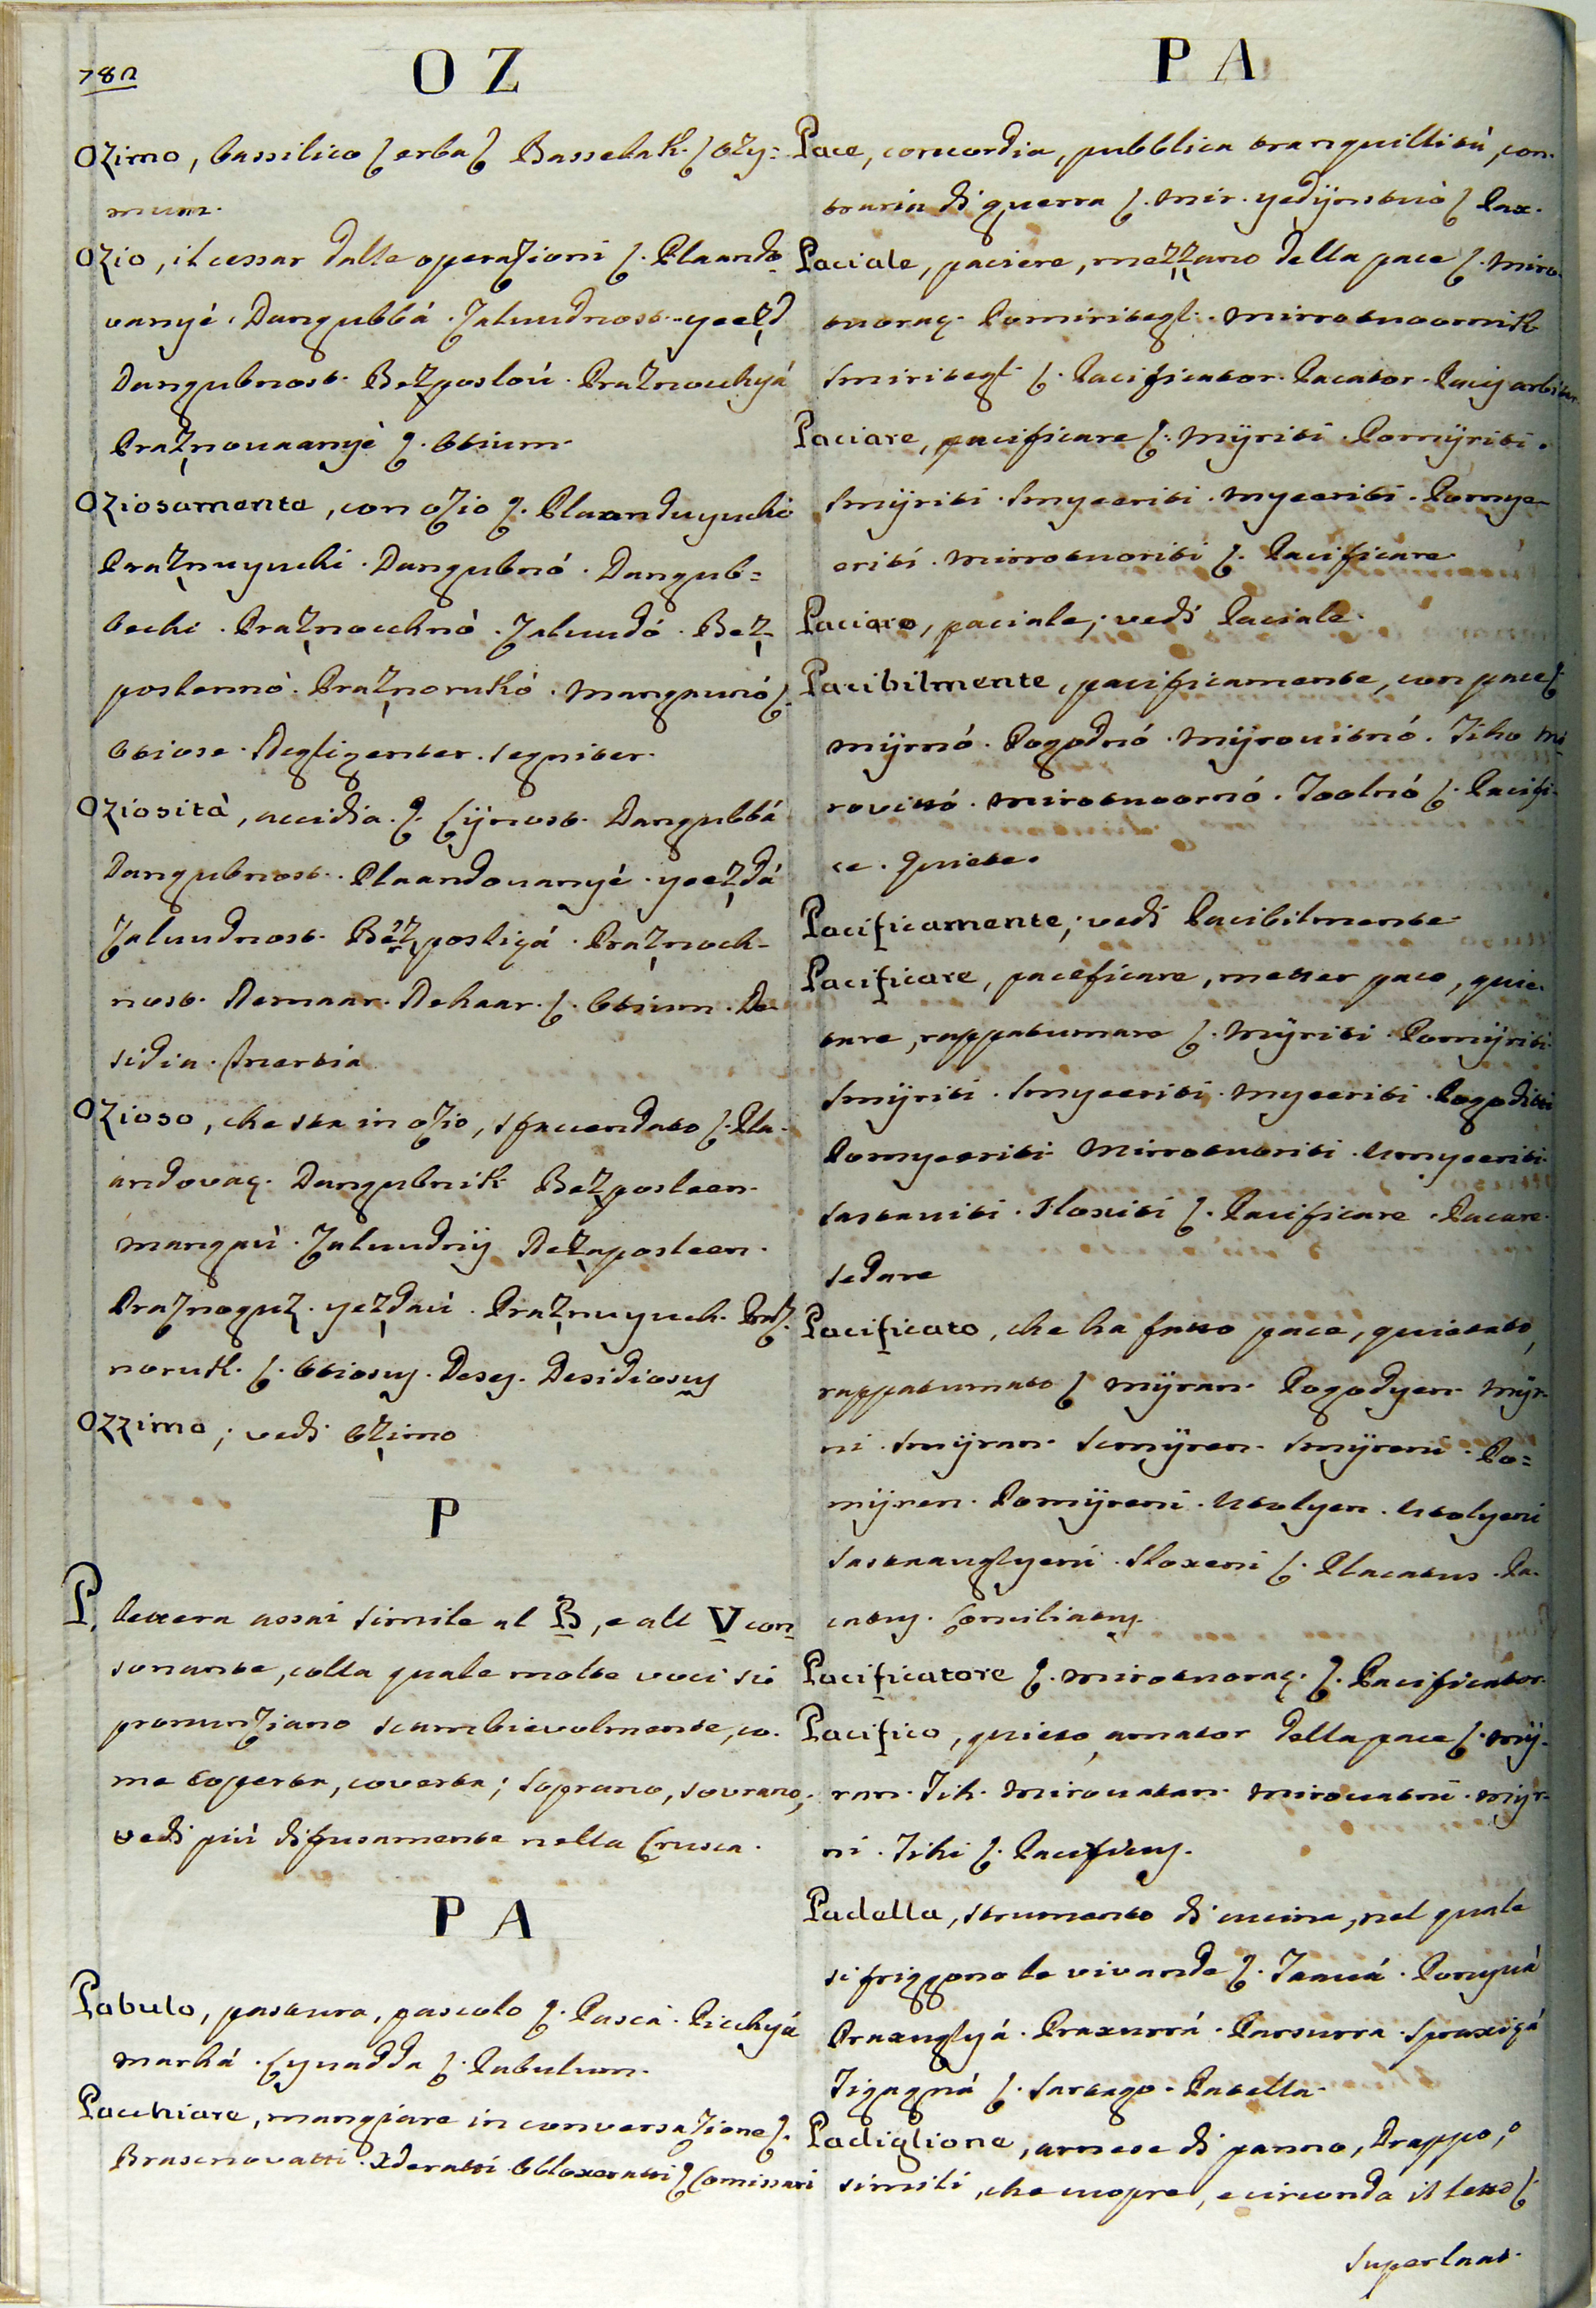 782
OZ
Ozimo, bassilico ( erba ( Basselak. ( Ozy=
mum.
Ozio, il cessar dalle operazioni (. Plaando-
vanyè. Dangubbá. Zaluudnost. yeezd
Dangubnost. Bezposlú. Praznochyá
Praznovaanyè (. Otium.
Oziosamente, con ozio (. Plaanduyuchi
Praznuyuchi. Dangubnó. Dangub=
bechi. Praznochnó. Zaluudó. Bez-
poslennó. Praznorukó. Mangaunó (.
Otiose. Negligenter. Segniter.
Oziosità, accidia. (. Lijnost. Dangubbá
Dangubnost. Plaandovanyè. yeezdá
Zaluudnost. Bezposligá. Praznoch-
nost. Nemaar. Nehaar. (. Otium. De-
sidia. Inertia
Ozioso, che sta in ozio, sfacendato (. Pla-
andovaç. Dangubnik Bezposleen.
Mangau. Zaluudnij Nezaposleen.
Praznoguz. yezdau. Praznuyuch. Praz-
noruk. (. Otiosus. Deses. Desidiosus
Ozzimo; vedi Ozimo
P
P. lettera assai simile al B, e all V con-
sonante, colla quale molte voci si
pronunziano scambievolmente, co-
me coperta, coverta; soprano, sovrano,
vedi più difusamente nella Crusca.
PA
Pabulo, pastura, pascolo (. Pasca. Picchyá
Marhá. Lyuadda (. Pabulum.
Pacchiare, mangiare in conversazione (.
Brascnovatti. Xderatti Obloxeratti ( Comissari
PA
Pace, concordia, pubblica tranquillità, con-
traria di guerra (. Mir. yedijnstuò ( Pax.
Paciale, paciere, mezzano della pace (. Miro-
tuoraç. Pomiritegl. Mirrotuoornik
Smiritegl (. Pacificator. Pacator. Pacis arbiter
Paciare, pacificare (. Mÿriti. Pomÿriti.
Smÿriti. Smyeeriti. Myeeriti. Pomye-
eriti. Mirrotuoriti (. Pacificare
Paciaro, paciale; vedi Paciale.
Pacibilmente, pacificamente, con pace (.
Mÿrnó. Pogodnó. Mÿrovitnó. Tiho Mi-
rovitó. Mirotuoornó. Toolnó (. Pacifi-
ce. Quiete.
Pacificamente; vedi Pacibilmente
Pacificare, paceficare, metter pace, quie-
tare, rappatumare (. Mÿriti. Pomÿriti.
Smÿriti. Smyeeriti. Myeeriti. Pogoditi
Pomyeeriti Mirrotuoriti. Umyeeriti
Sastaviti. Sloxiti (. Pacificare. Pacare.
Sedare
Pacificato, che ha fatto pace, quietato,
rappatumato ( Mÿran. Pogodyen. Mÿr-
ni. Smÿran. Smÿren. Smÿreni. Po=
mÿren. Pomÿreni. Utolyen. Utolyeni
Sastaauglyeni. Sloxeni (. Placatus. Pa-
catus. Conciliatus.
Pacificatore (. Mirotuoraç. (. Pacificator.
Pacifico, quieto, amator della pace (. Mÿ-
ran. Tih. Mirouatan. Mirouatni. Mÿr-
ni. Tihi (. Pacificus.
Padella, strumento di cucina, nel quale
si friggono le vivande (. Taaua. Ponyuá
Praxuglyá. Praxurrá. Parsurra. Spraxigá
Tigagná (. Sartago. Patella.
Padiglione, arnese di panno, Drappo, o
simili, che cuopre, e circonda il letto (.
Superlaat.